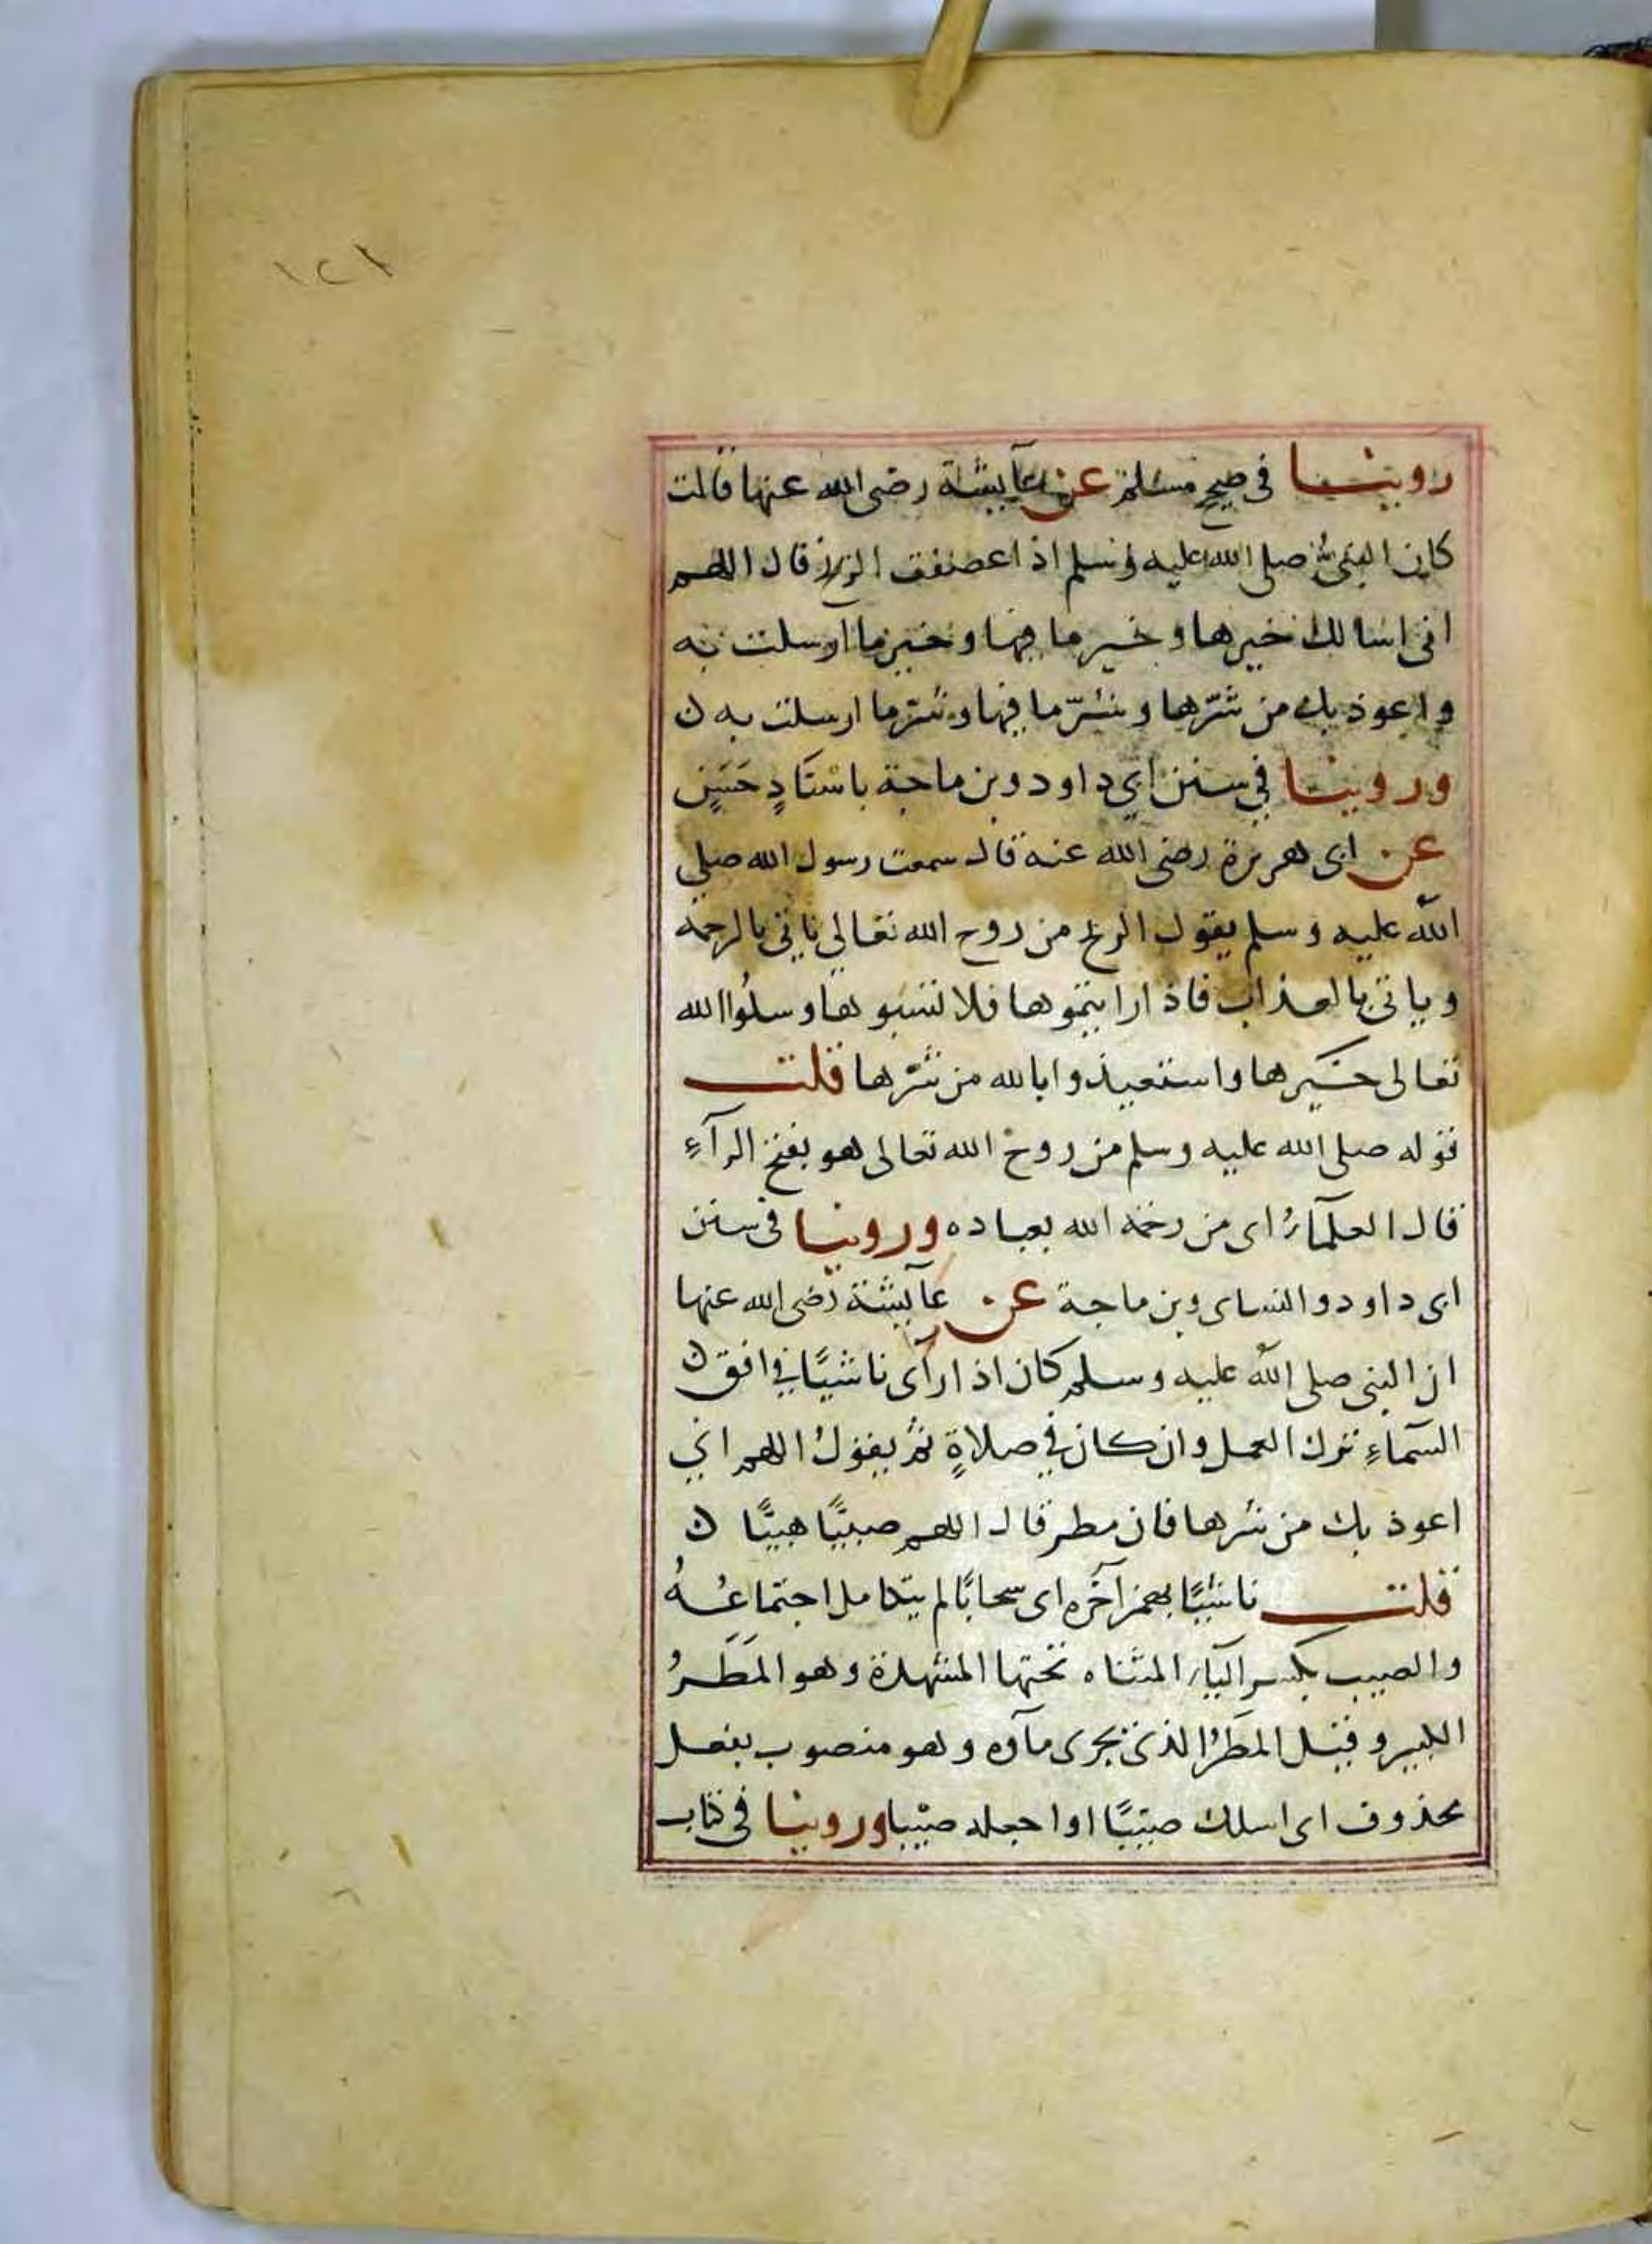 ١٢١
روينا في صحيح مسلم عن عآيشة رضي الله عنها قالت
كان النبي صلى الله عليه وسلم اذا عصفت الريح قال اللهم
اني اسالك خيرها وخير ما فيها وخير ما ارسلت به
واعوذ بك من شرّها وشرّ ما فيها وشرّ ما ارسلت به ن
وروينا في سنن ابي داود وبن ماجة باسنادٍ حَسَنٍ
عن ابي هريرة رضي الله عنه قال سمعت رسول الله صلى
الله عليه وسلم يقول الريح من روح الله تعالى تاتي بالرحمة
وياتي بالعذاب فاذا رايتموها فلا تسبوها وسلُوا الله
تعالى خَيرها واستعيذوا بالله من شرّها قلت
قوله صلى الله عليه وسلم من روح الله تعالى هو بفتح الرآءِ
قال العلمآءُ اي من رحمة الله بعباده وروينا في سنن
ابي داود والنساي وبن ماجة عن عآيشة رضي الله عنها
ان النبي صلى الله عليه وسلم كان اذا رآى ناشيًا في افق ن
السمآءِ ترك العمل وان كان في صلاةٍ ثم يقولُ اللهم اني
اعوذ بك من شرها فان مطر قال اللهم صيبًّا هنيًّا ن
قلت ناشيًا بهمز آخره اي سحابًا لم يتكامل اجتماعُهُ
والصيب بكسر اليآء المثناه تحتها المشددة وهو المَطَرُ
الكبير وقيل المطَرُ الذي يجرى مآوه وهو منصوب بفعل
محذوف اي اسلك صيّبًا او اجعله صيّبا وروينا في كتاب